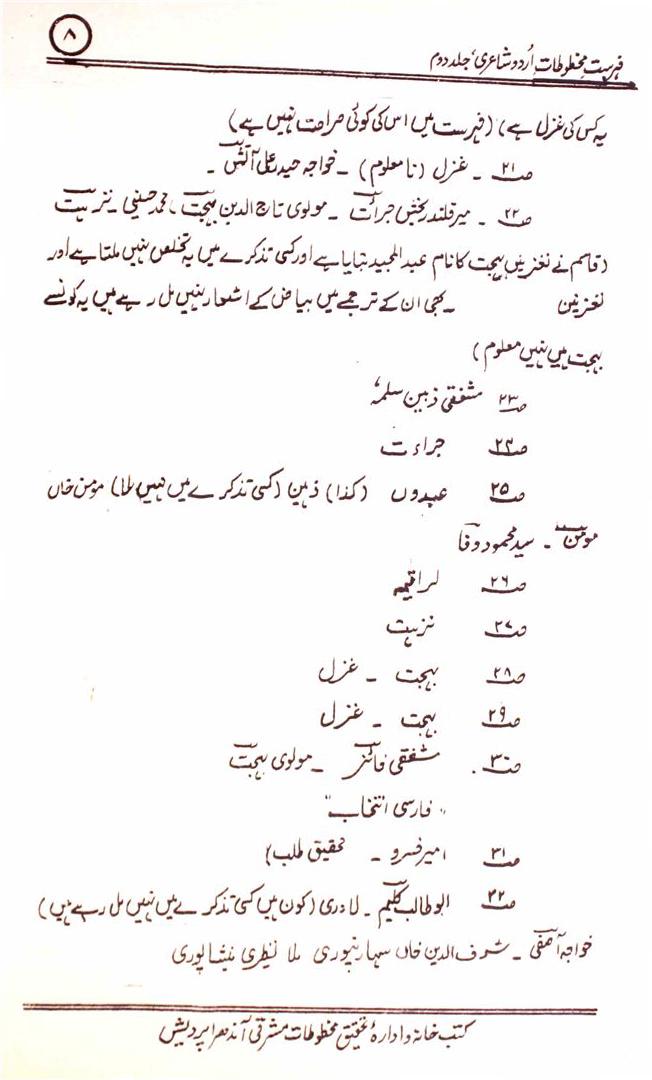 ۸
فہرستِ مخطوطات اُردو شاعری، جلد دوم
یہ کس کی غزل ہے) (فہرست میں اس کی کوئی صراحت نہیں ہے)
صـ۲۱ ۔ غزل (نامعلوم) ۔ خواجہ حیدر علی آتش ۔
صـ۲۲ ۔ میر قلندر بخش جرات ۔ مولوی تاج الدین بہجت ، محمد حسینی ۔ نزہت
(قاسم نے نغز میں بہجت کا نام عبدالمجید بتایا ہے اور کسی تذکرے میں یہ تخلص نہیں ملتا ہے اور
نغز میں ۔ کبھی ان کے ترجمے میں بیاض کے اشعار نہیں مل رہے ہیں یہ کونسے
بہجت ہیں نہیں معلوم)
صـ۲۳ مشفقی ذہین سلمہٗ
صـ۲۴ جراءت
صـ۲۵ عبدوں (کذا) ذہین (کسی تذکرے میں نہیں ملا) مومن خاں
مومن ۔ سید محمود وفا
صـ۲۶ لراقمہ
صـ۲۷ نزہت
صـ۲۸ بہجت ۔ غزل
صـ۲۹ بہجت ۔ غزل
صـ۳۰ . شفقی فائز ۔ مولوی بہجت
"فارسی انتخاب"
صـ۳۱ امیر خسرو ۔ تحقیق طلب)
صـ۳۲ ابو طالب کلیم ۔ لادری (کون ہیں کسی تذکرے میں نہیں مل رہے ہیں)
خواجہ آصفی ۔ شرف الدین خاں سہارنپوری ملا نظری نیشاپوری
کتب خانہ و ادارۂ تحقیق مخطوطات مشرقی آندھرا پردیش